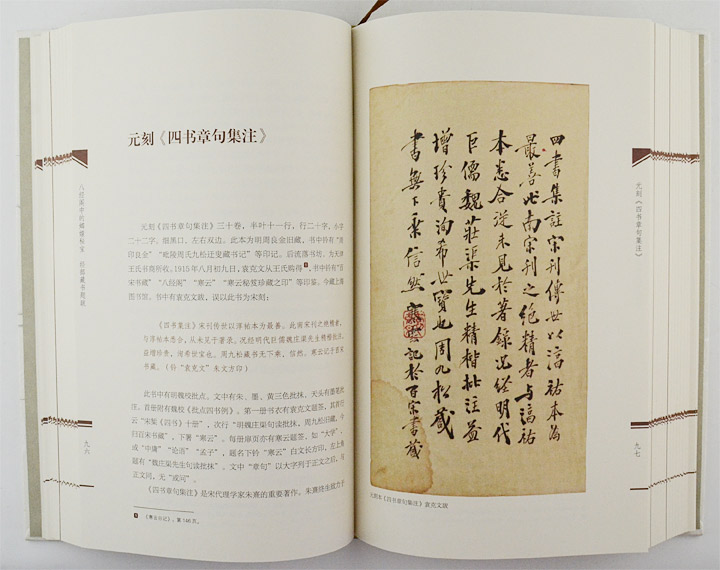 元刻《四书章句集注》
元刻《四书章句集注》三十卷，半叶十一行，行二十字，小字
二十二字，细黑口，左右双边。此本为明周良金旧藏，书中钤有“周
印良金”“毗陵周氏九松迂叟藏书记”等印记。后流落书坊，为天津
王氏书商所收，1915年八月初九日，袁克文从王氏购得。书中钤有“百
宋书藏”“八经阁”“寒云”“寒云秘笈珍藏之印”等印鉴，今藏上海
图书馆。书中有袁克文跋，误以此书为宋刻：
《四书集注》宋刊传世以淳祐本为最善。此南宋刊之绝精者，
与淳祐本悉合，从未见于著录。况经明代巨儒魏庄渠先生精楷批注，
益增珍贵，洵希世宝也。周九松藏书无下乘，信然。寒云记于百宋
书藏。（钤“袁克文”朱文方印）
此书中有明魏校批点。文中有朱、墨、黄三色批抹，天头有墨笔批
注。首册附有魏校《批点四书例》。第一册书衣有袁克文题签，其首行
云“宋椠《四书》十册”，次行“明魏庄渠句读批抹，周九松旧藏，今
归百宋书藏”，下署“寒云”。每册扉页亦有寒云题签，如“大学”，
或“中庸”“论语”“孟子”，题名下钤“寒云”白文长方印，左上角
题有“魏庄渠先生句读批抹”。文中“章句”以大字列于正文之后，与
正文同，无“或问”。
《四书章句集注》是宋代理学家朱熹的重要著作，朱熹终生致力于
《寒云日记》，第146页。
九六
四书集註宋刊傳世以淳祐本為
最善此南宋刊之绝精者与淳祐
本悉合從未見於著錄況经明代
巨儒魏莊渠先生精楷批注益
增珍貴洵希世寶也周九松藏
書無下乘信然寒雲記於百宋書藏
元刻本《四书章句集注》袁克文跋
元刻《四书章句集注》
九七